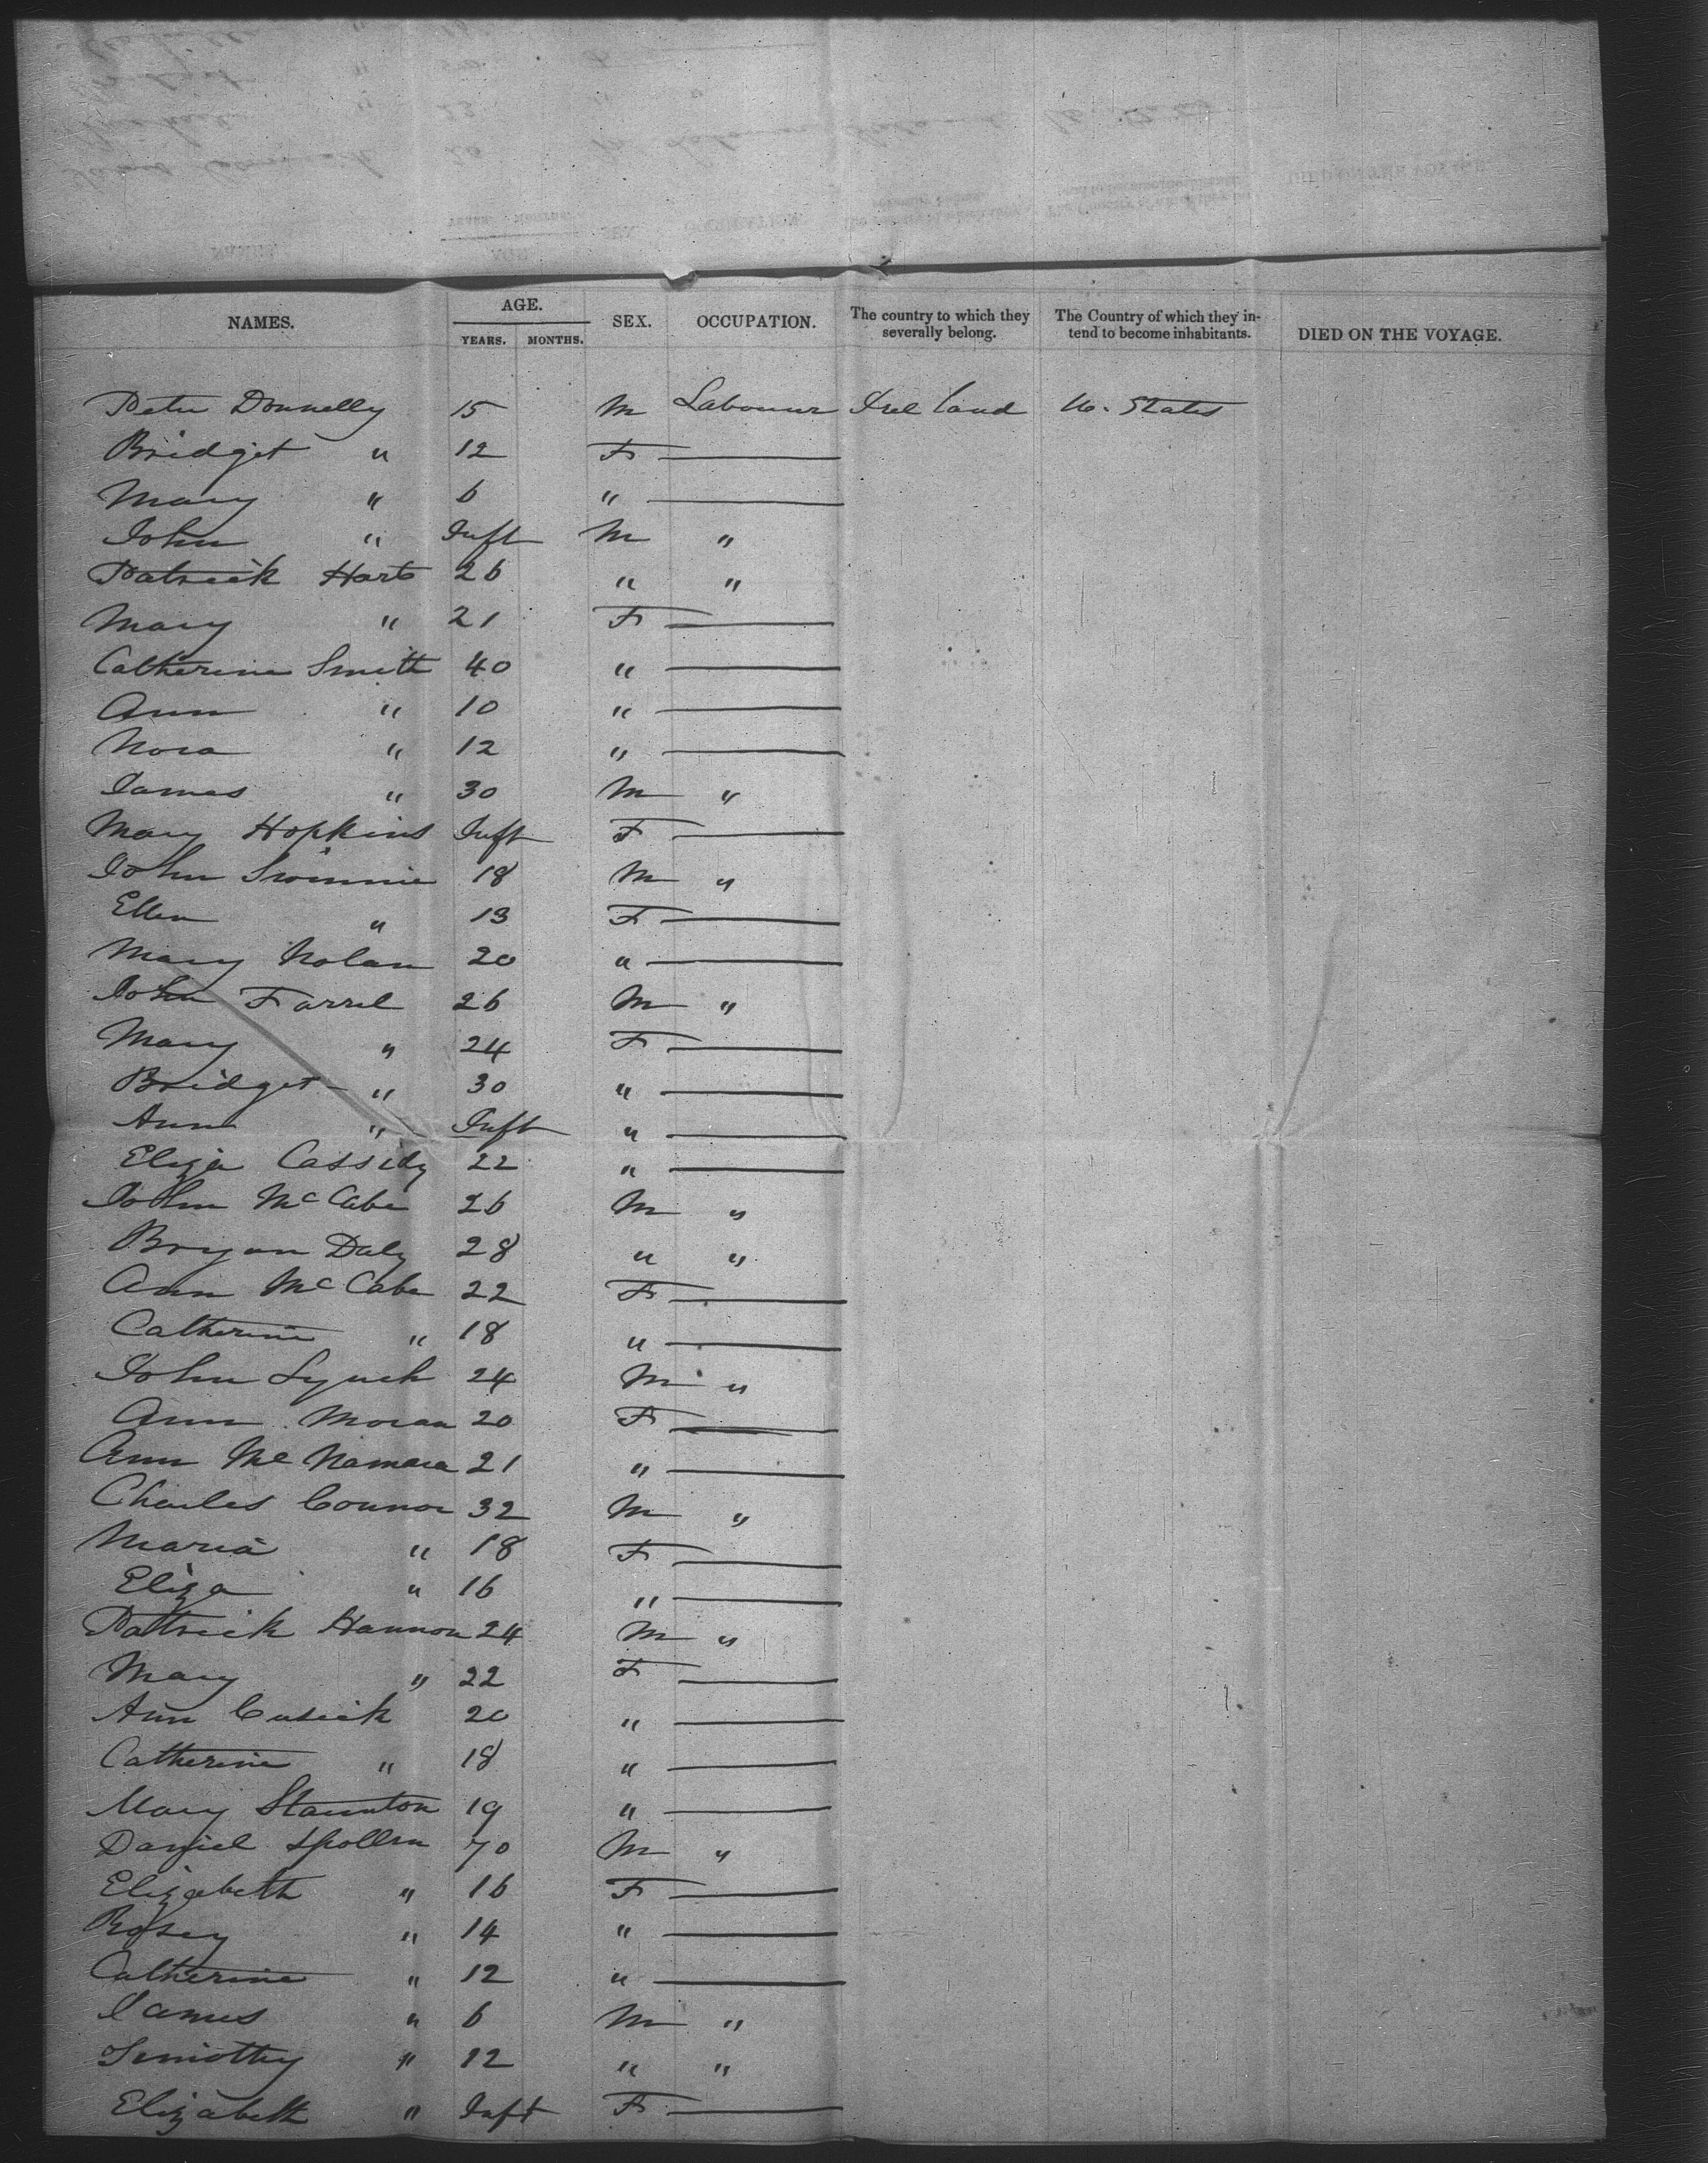 NAMES. AGE. SEX. OCCUPATION. The country to which they severally belong. The Country of which they intend to become inhabitants. DIED ON THE VOYAGE.
YEARS. MONTHS.
Peter Donnelly 15 M Labourer Ireland U. States
Bridget " 12 F
Mary " 6 "
John " Inft M "
Patrick Hart 26 " "
Mary " 21 F
Catherine Smith 40 "
Ann " 10 "
Nora " 12 "
James " 30 M "
Mary Hopkins Inft F
John Swinnie 18 M "
Ellen " 13 F
Mary Nolan 20 "
John Farrel 26 M "
Mary " 24 F
Bridget " 30 "
Ann " Inft "
Eliza Cassidy 22 "
John McCabe 26 M "
Bryan Daly 28 " "
Ann McCabe 22 F
Catherine " 18 "
John Lynch 24 M "
Ann Moran 20 F
Ann McNamara 21 "
Charles Connor 32 M "
Maria " 18 F
Eliza " 16 "
Patrick Hannon 24 M "
Mary " 22 F
Ann Cusick 20 "
Catherine " 18 "
Mary Staunton 19 "
Daniel Spollen 70 M "
Elizabeth " 16 F
Rosey " 14 "
Catherine " 12 "
James " 6 M "
Timothy " 12 " "
Elizabeth " Inft F